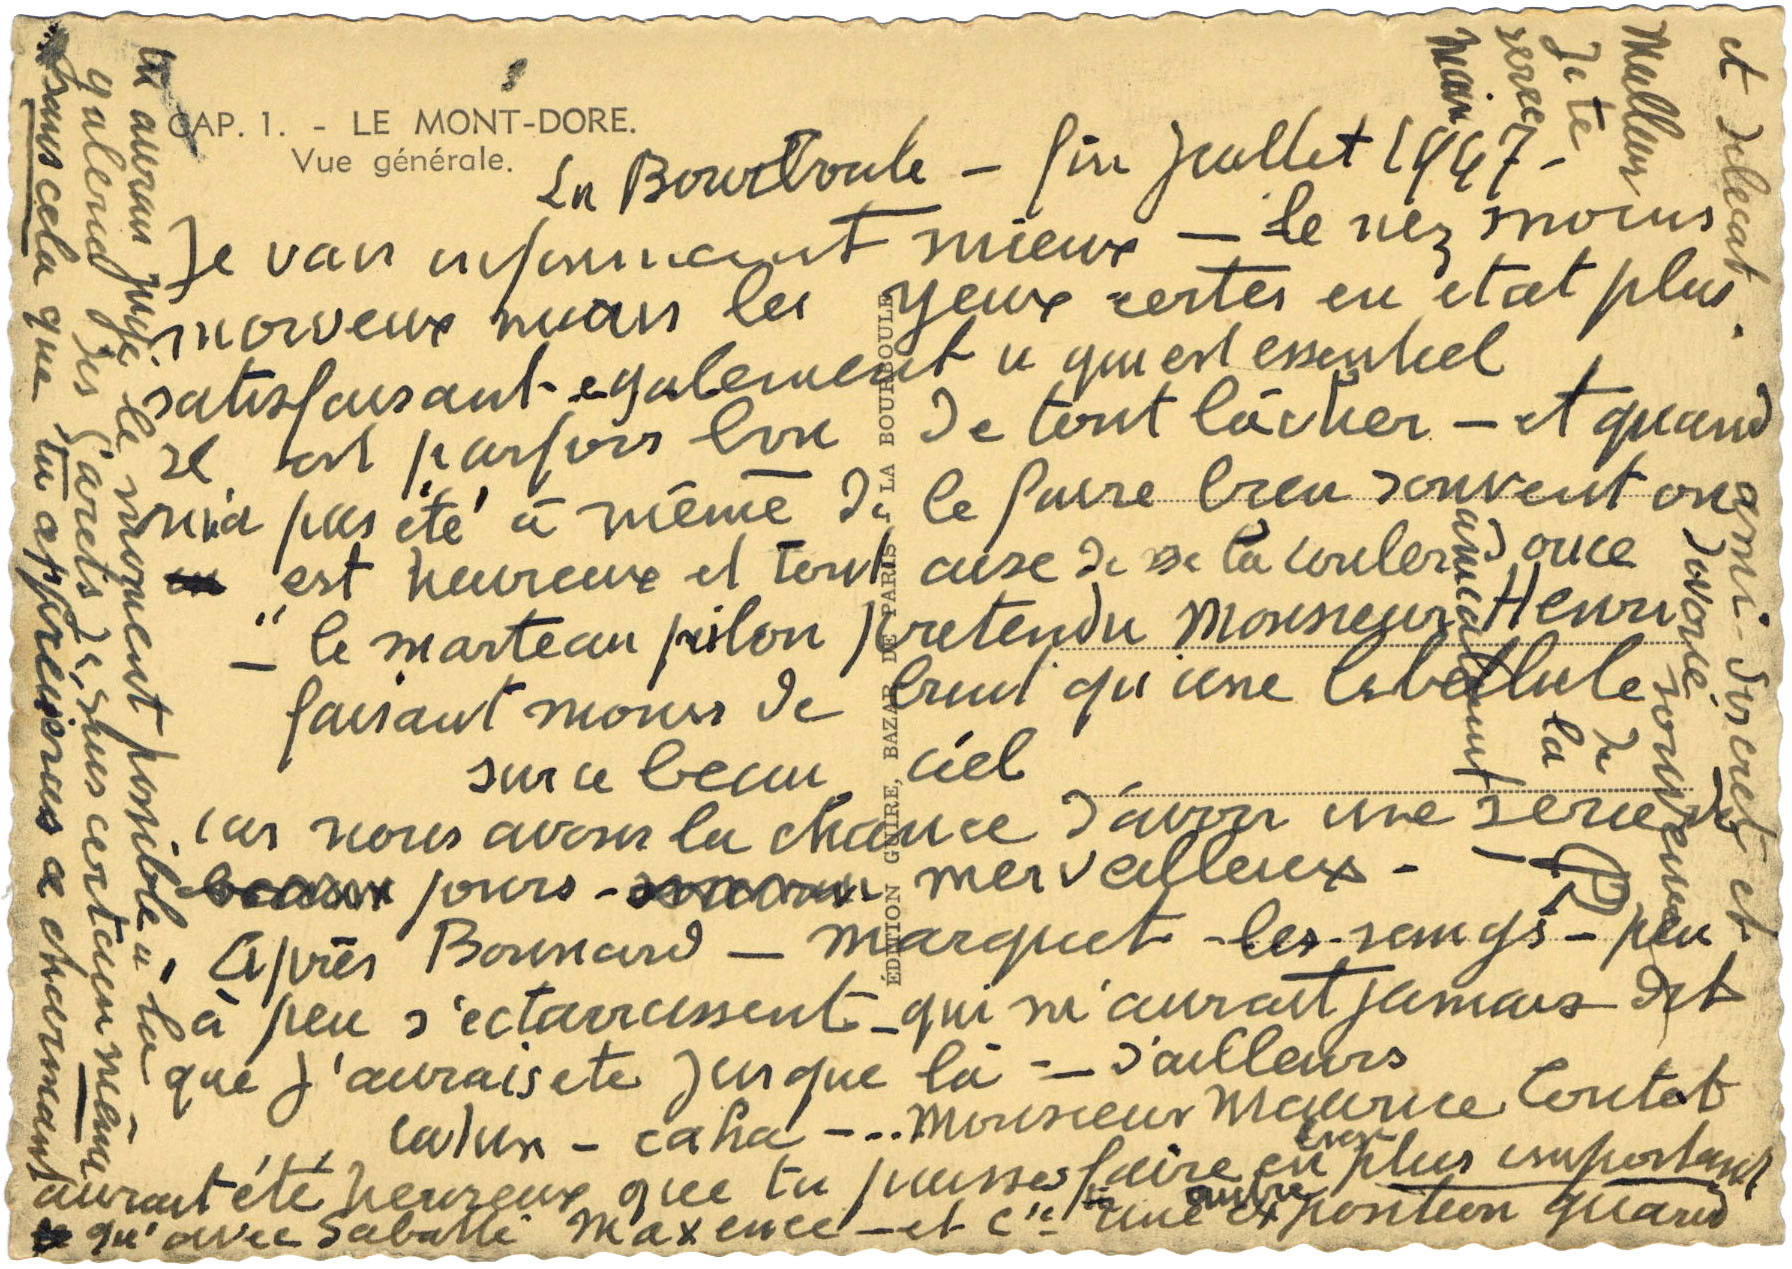 CAP. 1. - LE MONT-DORE.
Vue générale.
La Bourboule - fin juillet 1947 -
Je vais infiniment mieux — le nez moins
morveux mais les yeux certes en etat plus
satisfaisant egalement ce qui est essentiel
Il est parfois bon de tout lâcher — et quand
n'a pas été à même de le faire bien souvent on
est heureux et tout aise de se la couler douce
— " le marteau pilon pretendu Monsieur Henri
faisant moins de bruit qu'une libellule
sur ce beau ciel
car nous avons la chance d'avoir une série de
jours - merveilleux -
Après Bonnard — Marquet - les rangs - peu
à peu s'eclaircissent - qui m'aurait jamais dit
que j'aurais ete jusque là - — d'ailleurs
cahin - caha - .. Monsieur Maurice Coutot
aurait été heureux que tu puisses faire en plus important
qu'avec Maxence - et Cie une autre exposition quand
tu auras jugé le moment possible à la
galerie des de, suis certain même
sans cela que tu apprecieras ce charmant
ami - discret et
et delicat
devoué
Meilleur souvenir
Je te serre la main
amicalement
ÉDITION GUIRE, BAZAR DE PARIS, LA BOURBOULE